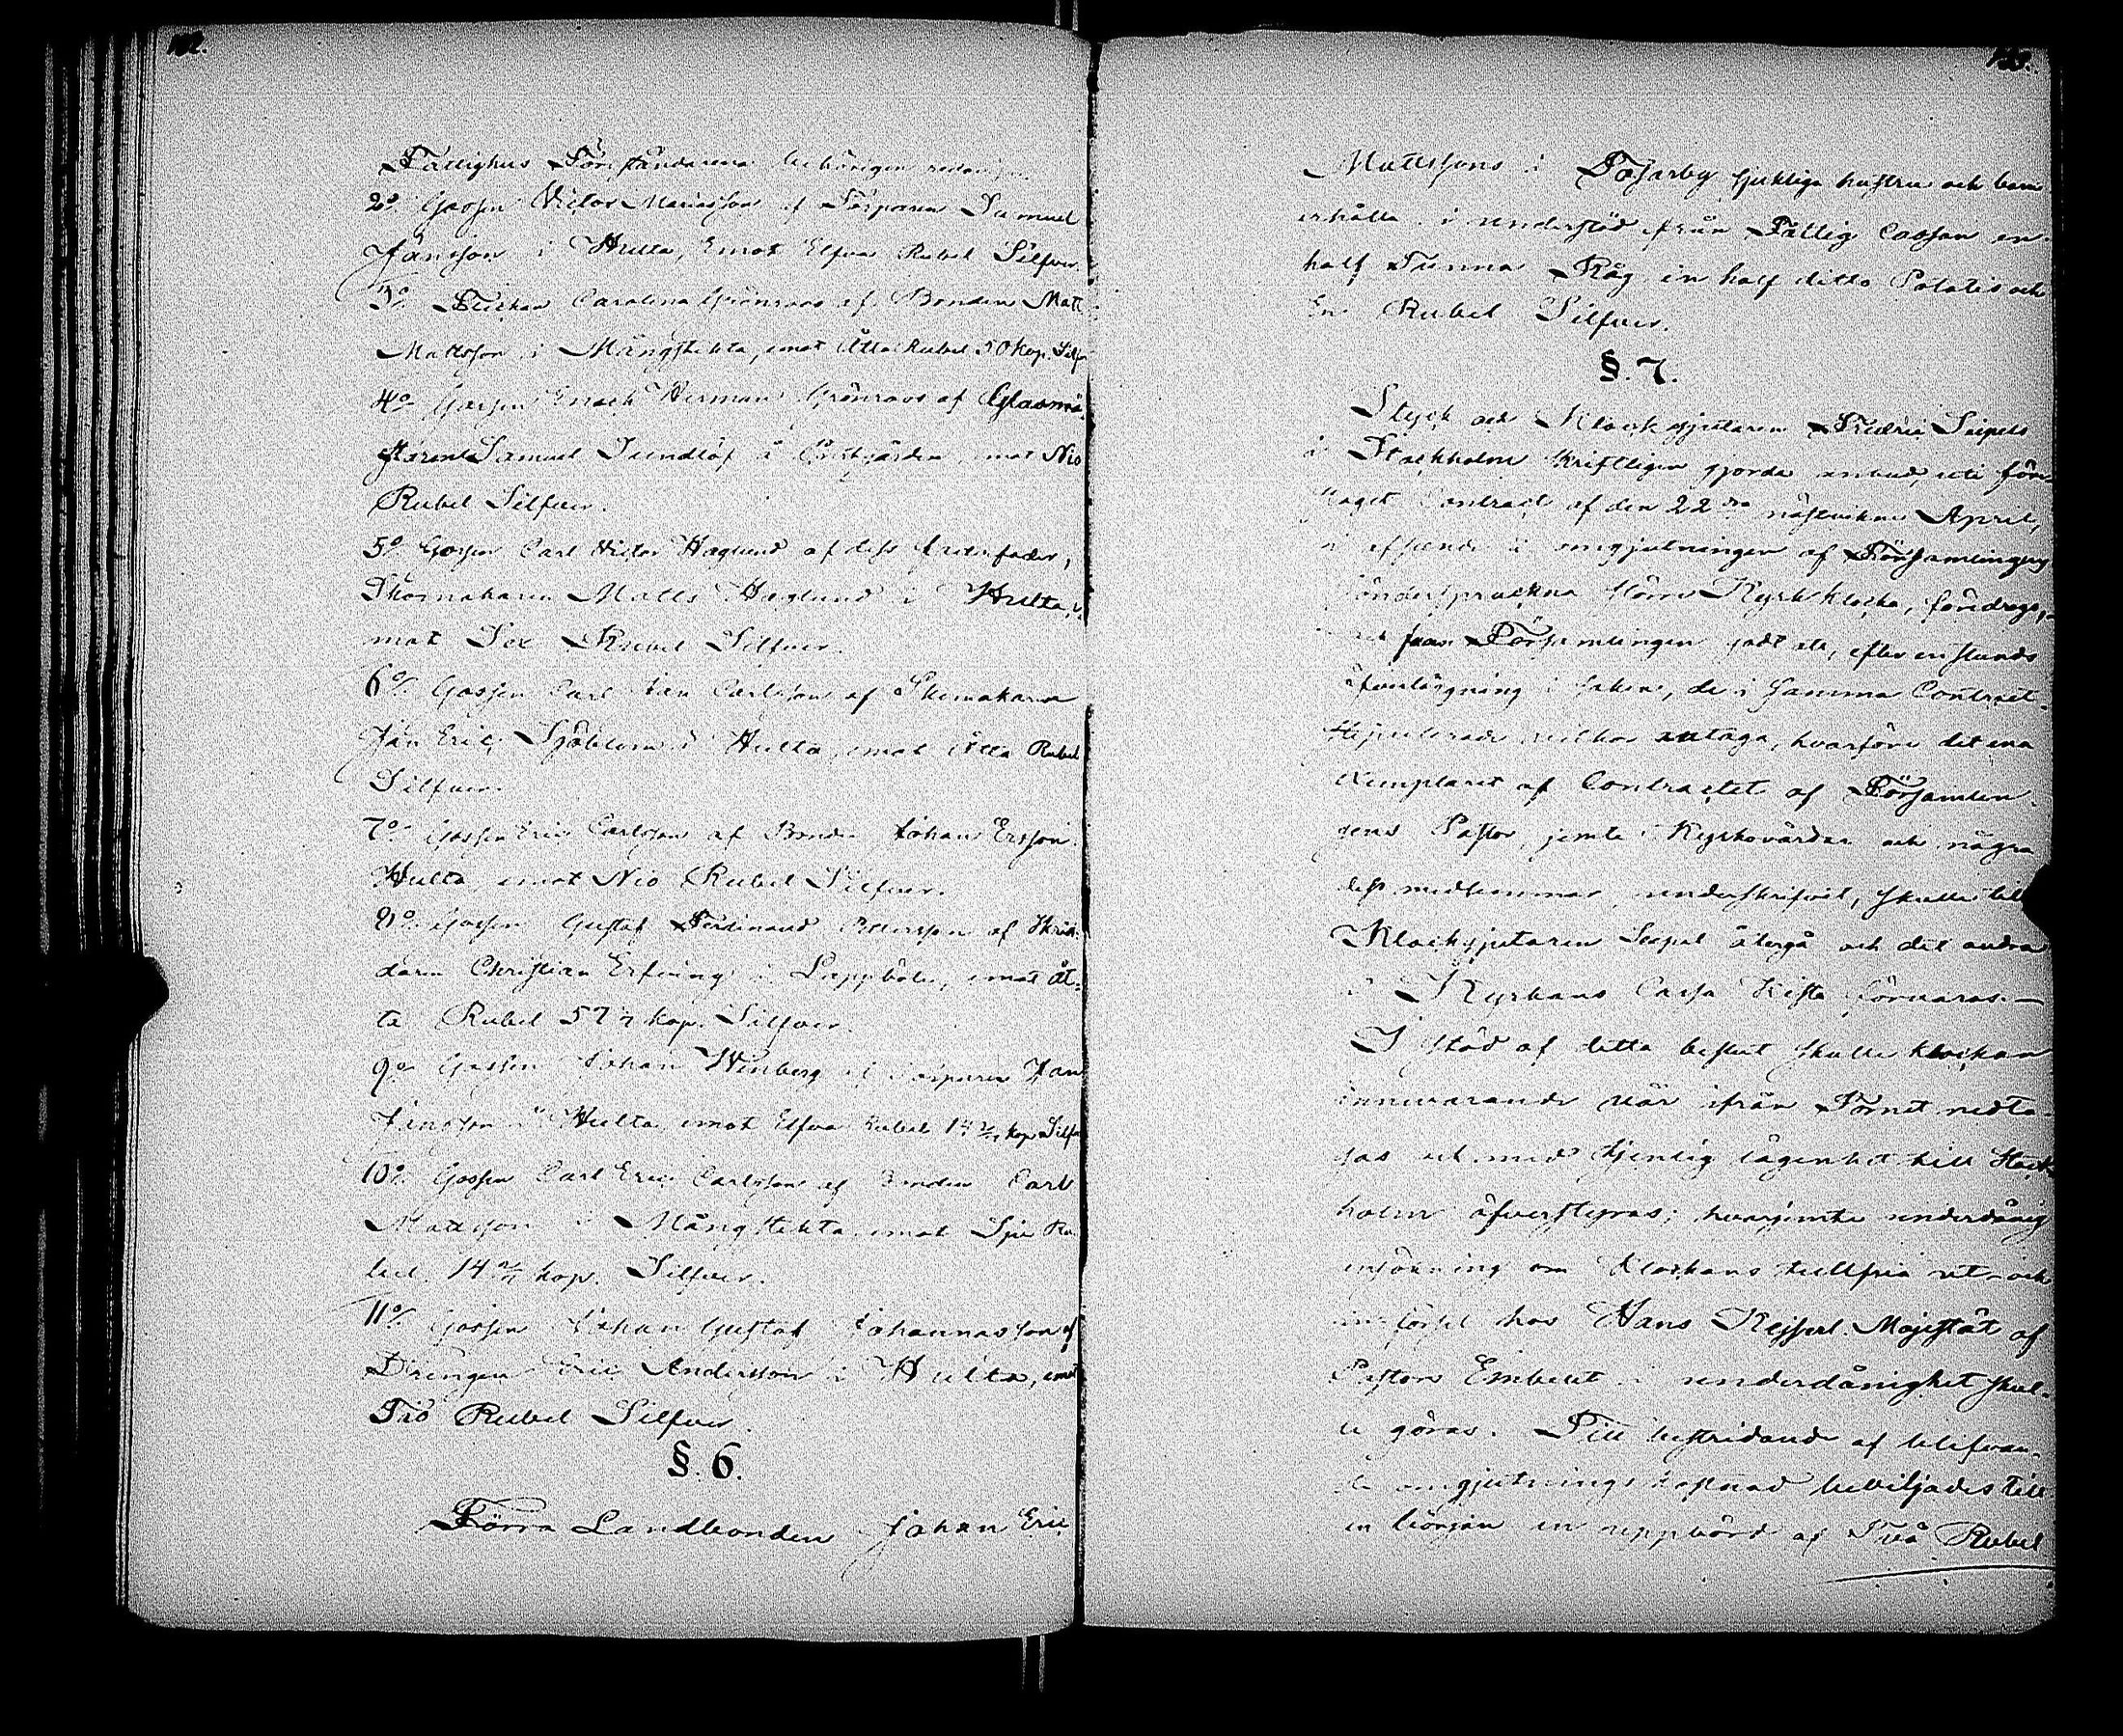 Fattighus Föreståndarene behörigen
2o/ Gossen Victor Mariasson af Torparen Samuel
Jansson i Hulta, Emot Elfva Rubel Silfver.
3o/ Flickan Carolina Grönroos af Bonden Matt
Mattsson i Mångstekta, emot Åtta Rubel 50 kop. Silf
4o/ Gossen Enoch Herman Grönroos af Glasmä-
staren Samuel Sundlöf å emot Nio
Rubel Silfver.
5o/ Gossen Carl Victor Haglund af dess
Matts Haglund i Hulta, e-
mot Sex Rubel Silfver.
6o/ Gossen Carl Jan Carlsson af Skomakaren
Jan Eric Sjöblom i Hulta, emot Åtta Rubel
Silfver.
7o/ Gossen Eric Carlsson af Bonden Johan Ersson
Hulta, emot Nio Rubel Silfver.
8o/ Gossen Gustaf Ferdinand Pettersson af Skräd-
daren Christian Erfving i Lappböle, emot åt-
ta Rubel 57 1/7 kop. Silfver.
9o/ Gossen Johan Wenberg af Torparen Jan
Jansson i Hulta, emot Elfva Rubel 14 2/7 kop Silfv
10o/ Gossen Carl Eric Carlsson af Bonden Carl
Mattsson i Mångstekta, emot Sju Ru-
bel 14 2/7 kop. Silfver.
11o/ Gossen Johan Gustaf Johannasson af
Drengen Eric Andersson i Hulta, emot
Tio Rubel Silfver.
§. 6.
Förra Landbonden Johan Eric
Mattssons i Tosarby sjukliga hustru och barn
erhålla i understöd från Fattig Cassan en
half Tunna Råg, en half ditto Potatis och
En Rubel Silfver.
§. 7.
Styck och Klockgjutaren Fredric Seipels
i Stockholm skriftligen gjorda anbud, uti före-
slaget Contract af den 22dra nästvikne April,
i afseende å omgjutningen af Församlingens
sönderspruckna större Kyrkklocka, föredrogs,
och fann Församlingen godt att, efter en stunds
öfverläggning i saken, de i samma Contract
stipulerade vilkor antaga, hvarföre det ena
exemplaret af Contractet af Församlin-
gens Pastor, jemte Kyrkovärdar och några
dess medlemmar, underskrifvit, skulle till
Klockgjutaren Seipel återgå och det andra
i Kyrkans Cassa Kista förvaras.—
I stöd af detta beslut skulle klockan
innevarande vår ifrån Tornet nedta-
gas och med tjenlig lägenhet till Stock-
holm öfverstyras; hvarjemte underdånig
ansökning om Klockans tullfria ut- och
införsel hos Hans Kejserl. Majestät af
Pastors Embetet i underdånighet skul-
le göras. Till bestridande af blifvan-
de omgjutnings kostnad beviljades till
en början en uppbörd af Två Rubel